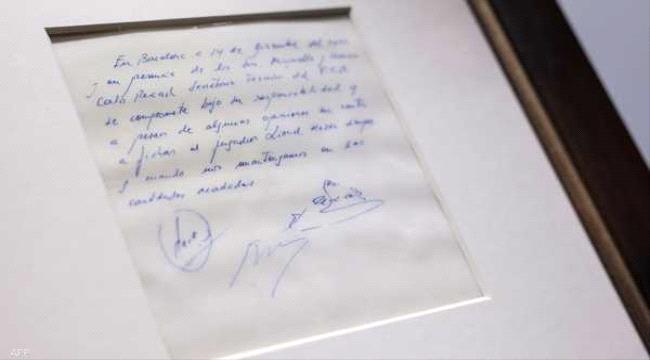 En Barcelona a 14 de diciembre del 2000
y en presencia de los Sres Minguella y Horacio
Carles Rexach Secretario Técnico del F.C.B
se compromete bajo su responsabilidad y
a pesar de algunas opiniones en contra
a fichar al jugador Lionel Messi siempre
y cuando nos mantengamos en las
cantidades acordadas
AFP